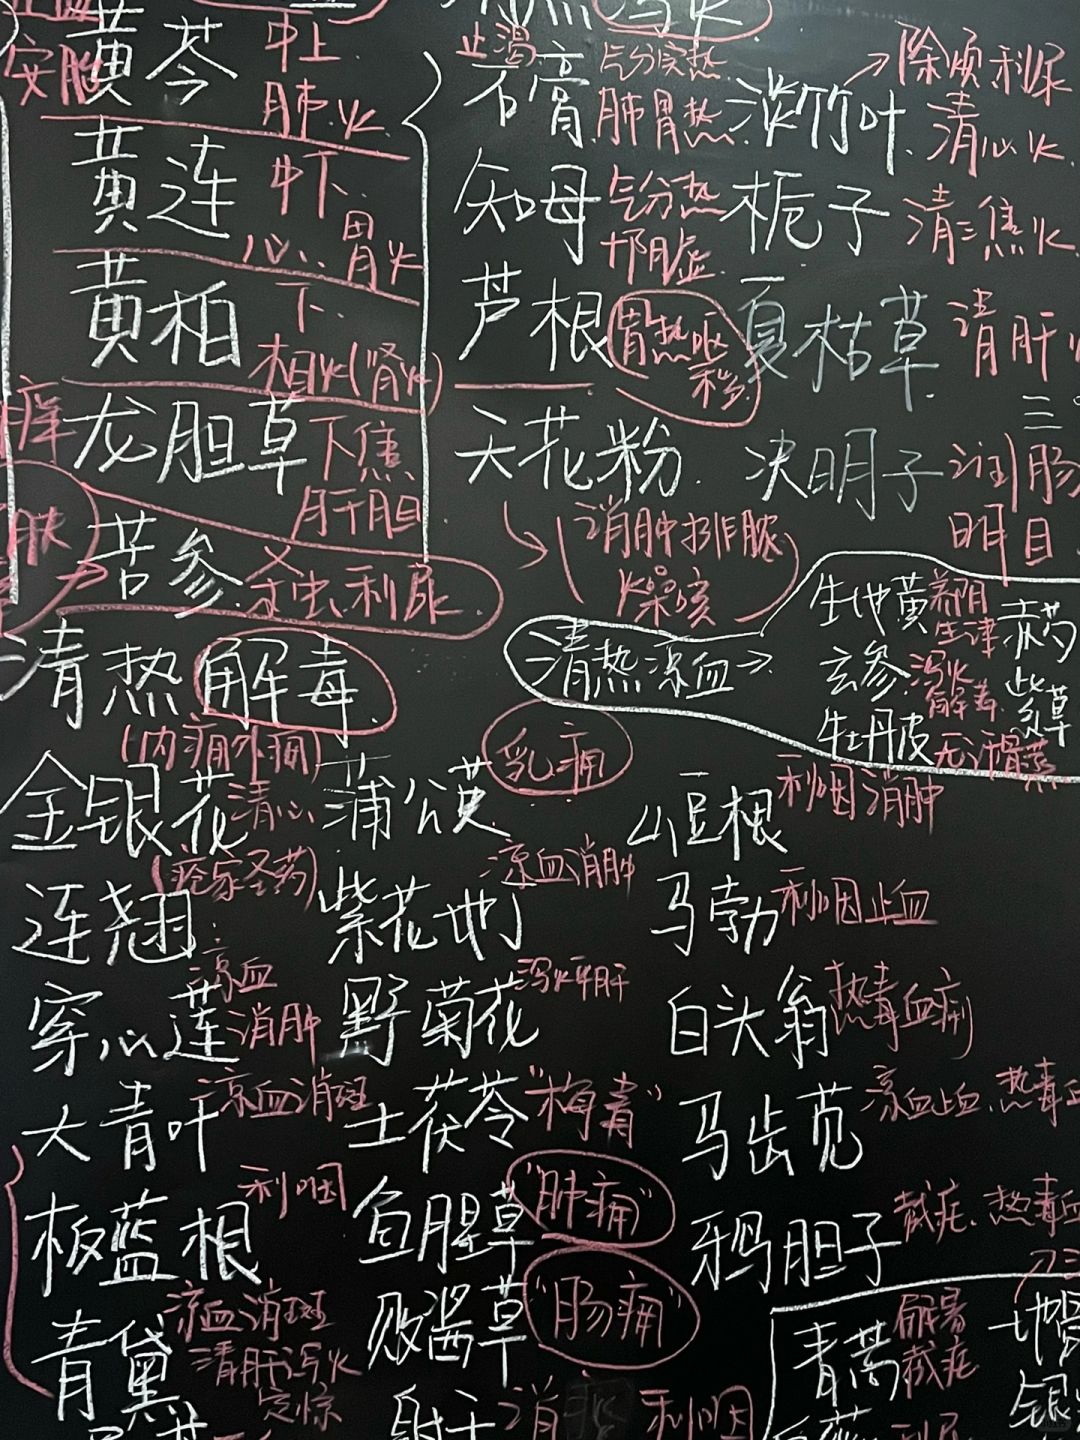 黄芩 中上
安胎
肺火
黄连 中下
心、胃火
黄柏 下
相火(肾火)
龙胆草 下焦
肝胆
痒
苦参 杀虫、利尿
止渴
石膏 气分实热
肺胃热
知母 气分热
阴虚
芦根 胃热呕
天花粉
消肿排脓
燥咳
淡竹叶 除烦利尿
清心火
栀子 清三焦火
夏枯草 清肝
决明子 润肠
明目
清热凉血→
生地黄 养阴
生津
玄参 泻火
解毒
牡丹皮 无汗骨蒸
赤芍
紫草
清热解毒
(内痈外痈)
金银花 清心
(疮家圣药)
连翘
穿心莲 凉血
消肿
大青叶 凉血消斑
板蓝根 利咽
青黛 凉血消斑
清肝泻火
定惊
蒲公英 乳痈
紫花地丁 凉血消肿
野菊花 泻火平肝
土茯苓 "梅毒"
鱼腥草 "肺痈"
败酱草 "肠痈"
射干 消 利咽
山豆根 利咽消肿
马勃 利咽止血
白头翁 热毒血痢
马齿苋 凉血止血、热毒血
鸦胆子 截疟、热毒血
青蒿 解暑
截疟
地
银
利尿